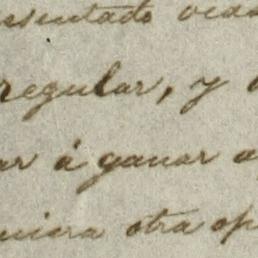 esentado veas
regular, y
ar á ganar a
uiera otra op